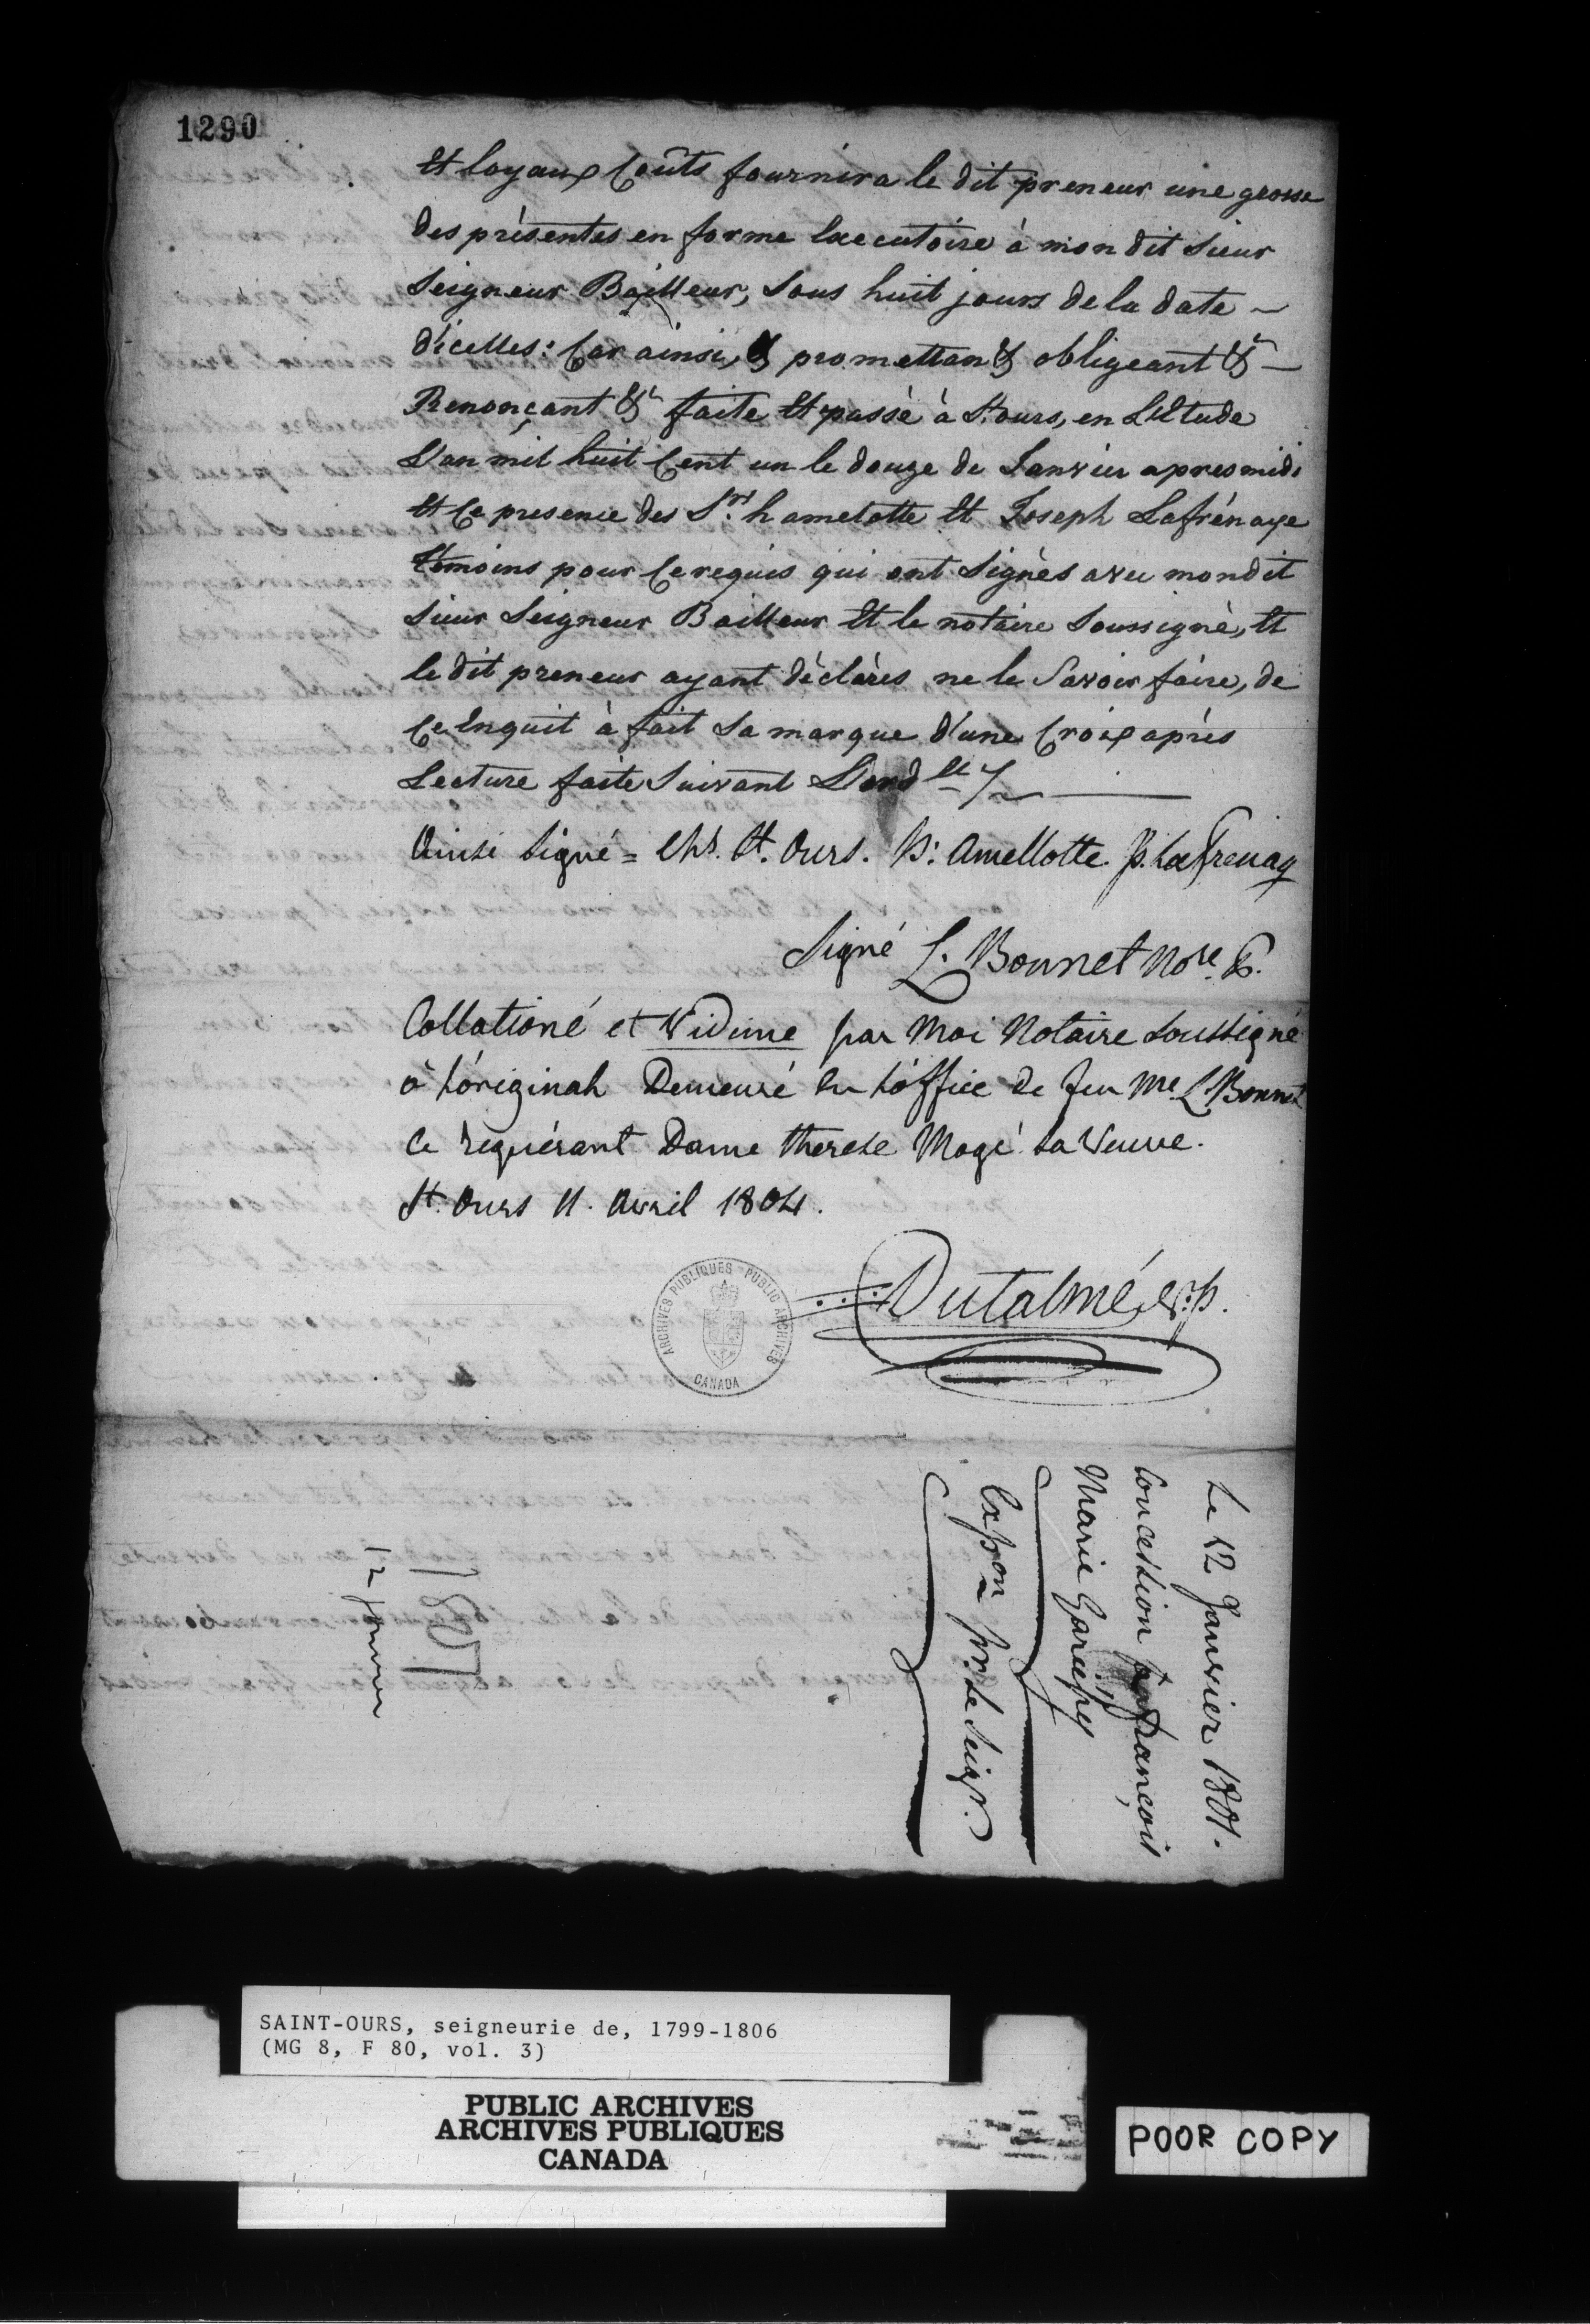 1290
Et loyaux Coûts fournira le dit preneur une grosse
des présentes en forme Executoire à mon dit Sieur
Seigneur Bailleur, Sous huit jours de la date ~
d'icelles: Car ainsi, & promettant & obligeant &c —
Renonçant &c faite Et passé à St. ours, en L'Etude
L'an mil huit Cent un le douze de Janvier apres midi
Et Ce presence des Srs. hamelotte Et Joseph Lafrénaye
témoins pour Ce requis qui ont Signès avec mondit
Sieur Seigneur Bailleur Et le notaire Soussigné, Et
le dit preneur ayant déclàrès ne le Savoir fáire, de
Ce Enquit à fait Sa marque d'une Croix après
Lecture faite Suivant L'ord ce
Ainsi Signé = Chs. St. Ours. P: Amellotte. J. LaFrenay
Signé L. Bonnet Nore. P.
Collationé et Vidimé par Moi Notaire Soussigné
à L'original Demeuré En L'office de feu Me. L. Bonnet
Ce requérant Dame therese Mogé Sa Veuve.
St. Ours 11. Avril 1804.
Dutalmé, N:p.
ARCHIVES PUBLIQUES - PUBLIC ARCHIVES
CANADA
Le 12 Janvier 1801.
Concession par françois
Marie Gariépy
Expon pr. Le Seigr.
1801
12 Janvier
SAINT-OURS, seigneurie de, 1799-1806
(MG 8, F 80, vol. 3)
PUBLIC ARCHIVES
ARCHIVES PUBLIQUES
CANADA
POOR COPY